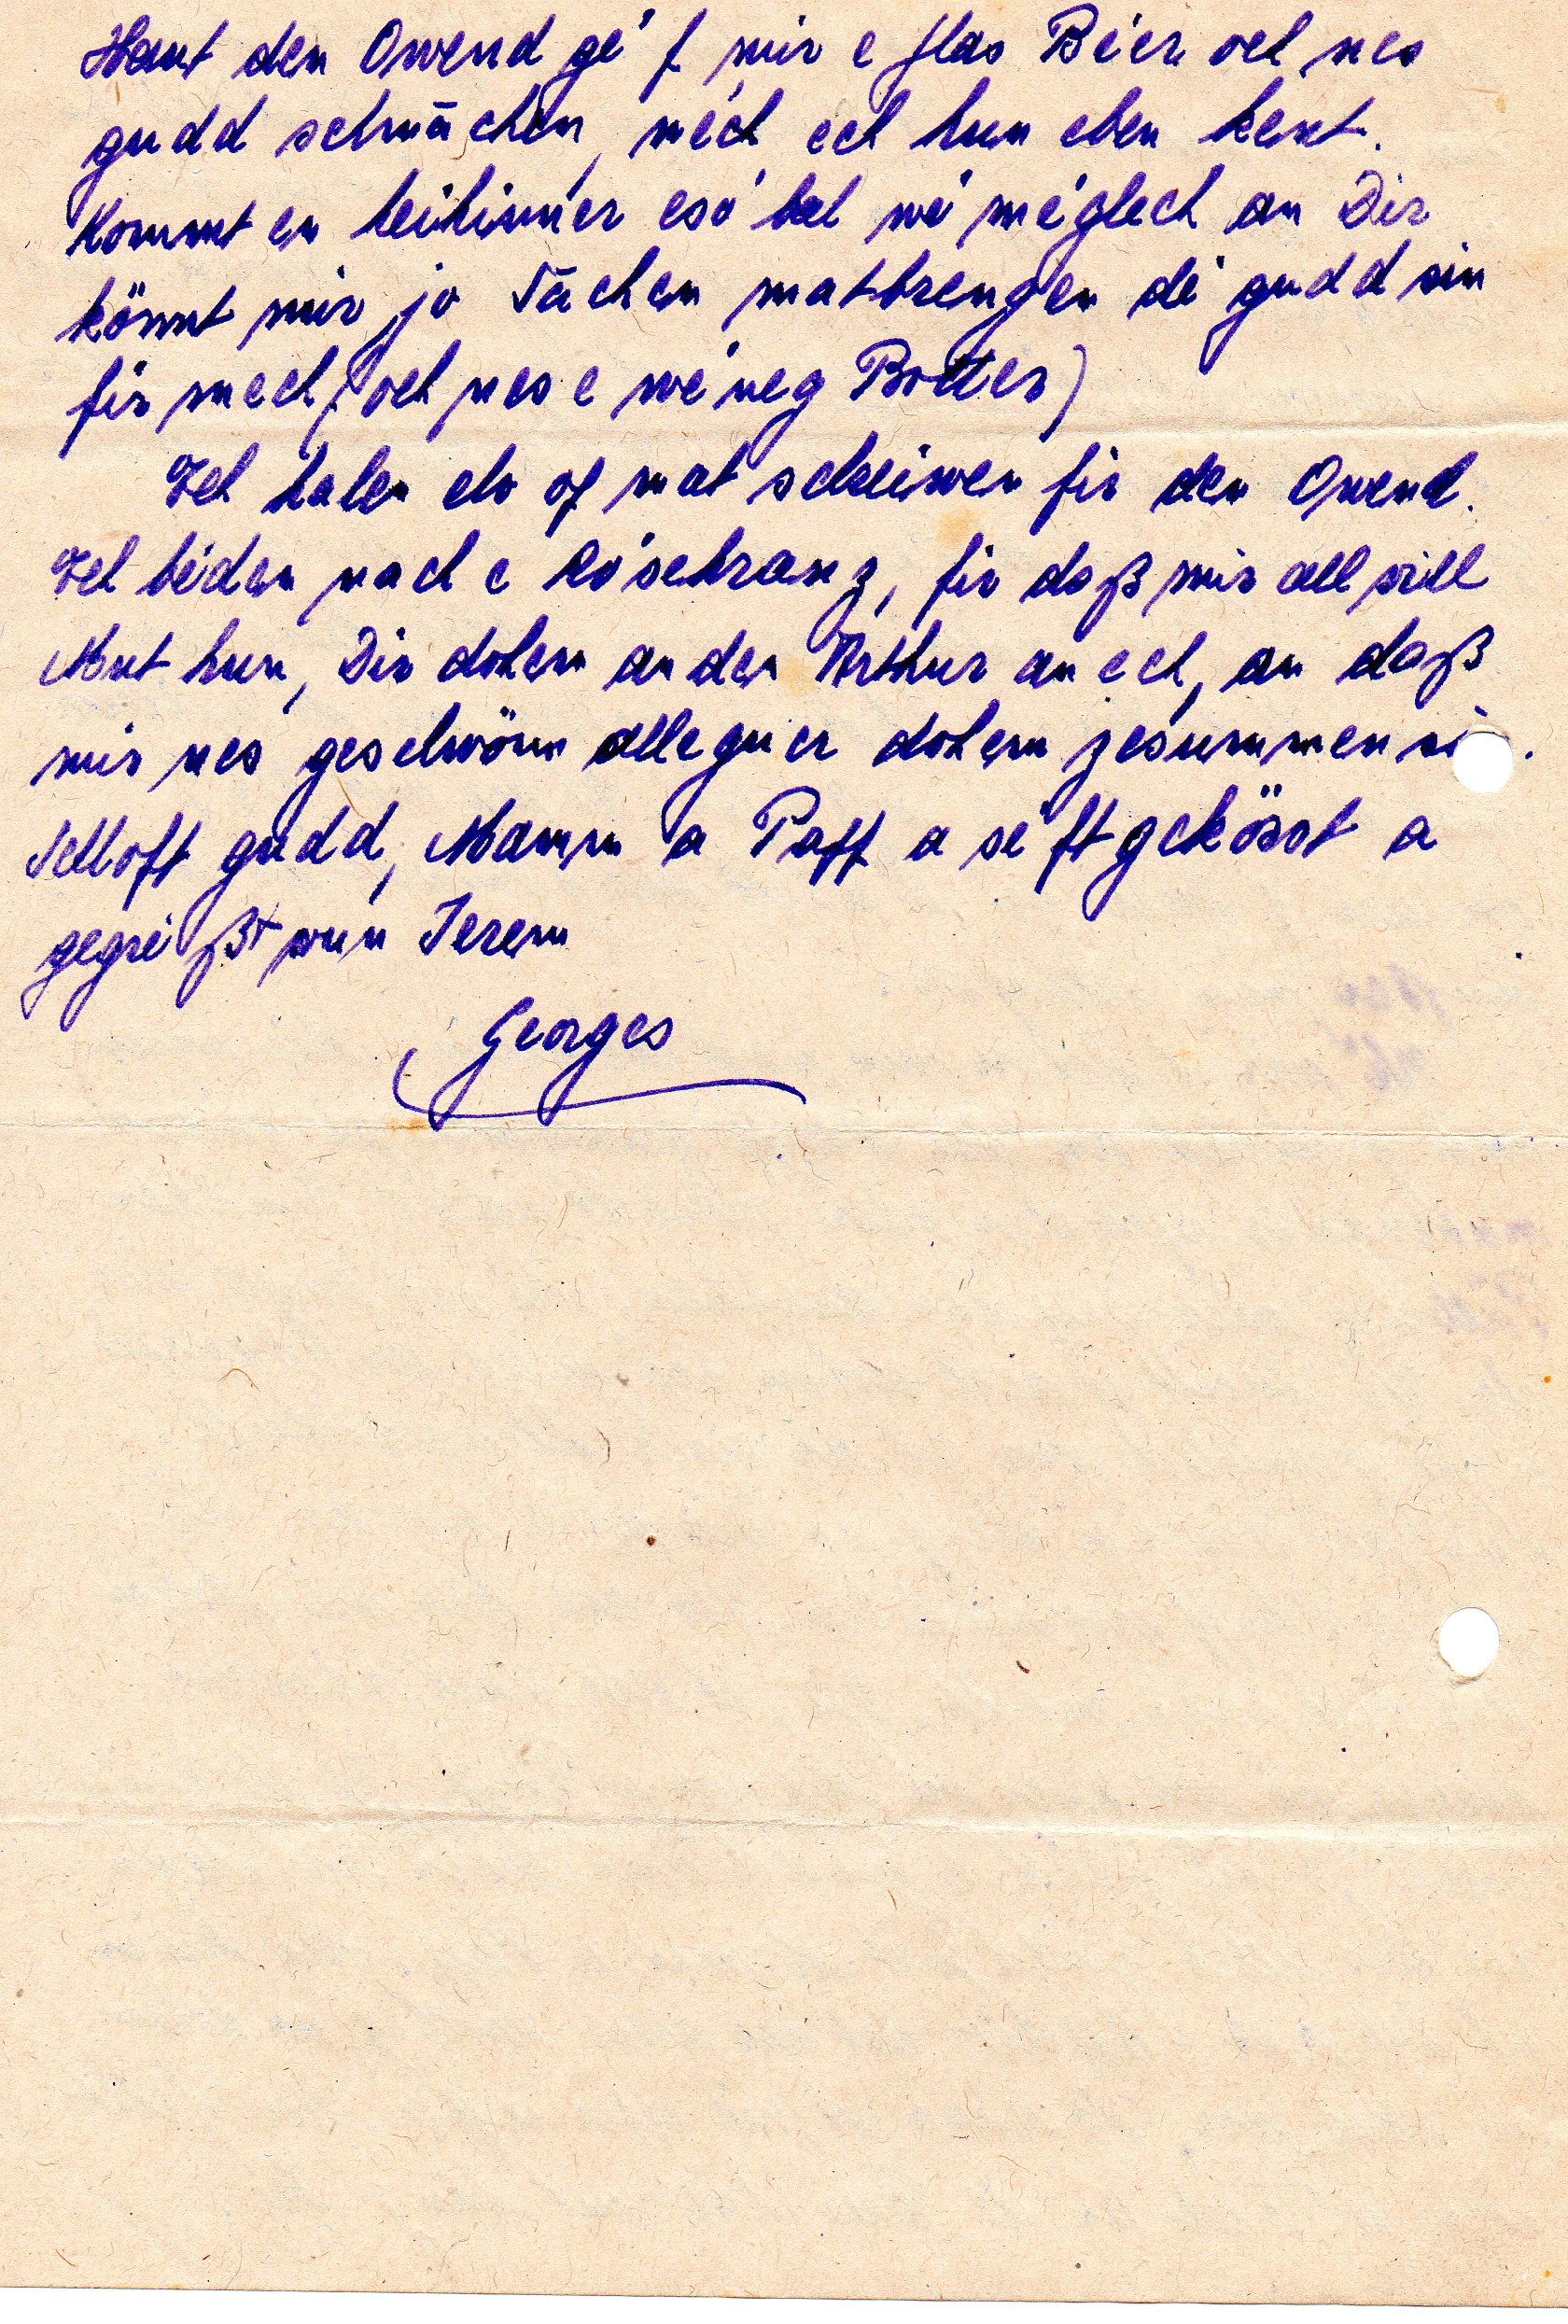 Haut den Owend gé'f mir e Glas Béier och nes
gudd schmâchen, méch ech hun eben kent.
Kommt en heihinner esó bal wé méglech an Dir
könnt mir jo Sâchen matbrengen dé gudd sin
fir mech (och nes e wéneg Botter)
Ech halen elo op mat schreiwen fir den Owend.
Ech béden nach e Rósekranz, fir daß mir all vill
Mut hun, Dir dohem an den Arthur an ech, an daß
mir nes geschwönn alleguer dohem zesummen si .
Schloft gudd, Mamm a Papp a sé'ft geköscht a
gegré'ßt vun Ierem
Georges